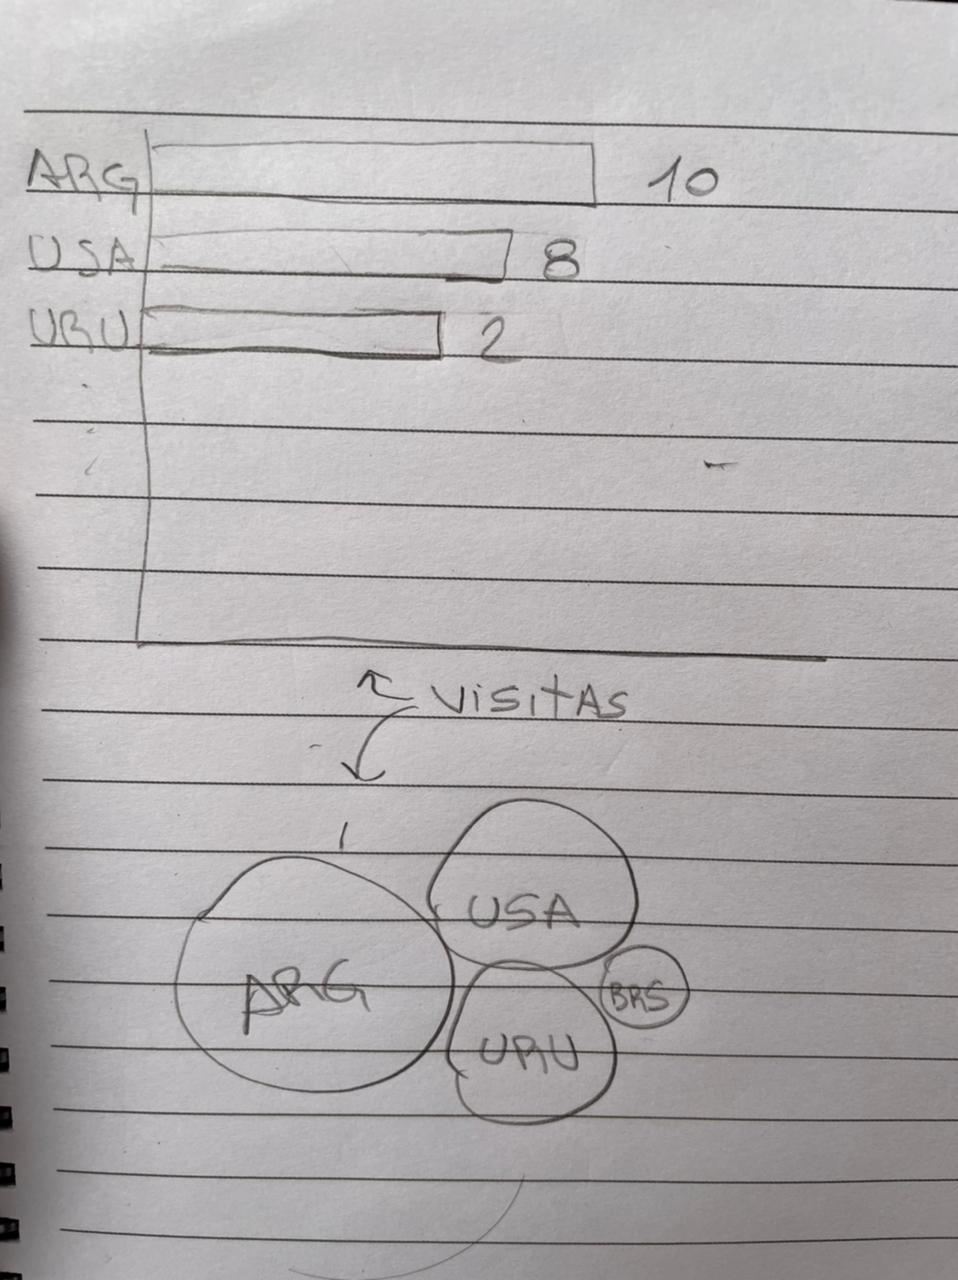 ARG 10
USA 8
URU 2
VISITAS
USA
ARG
BRS
URU